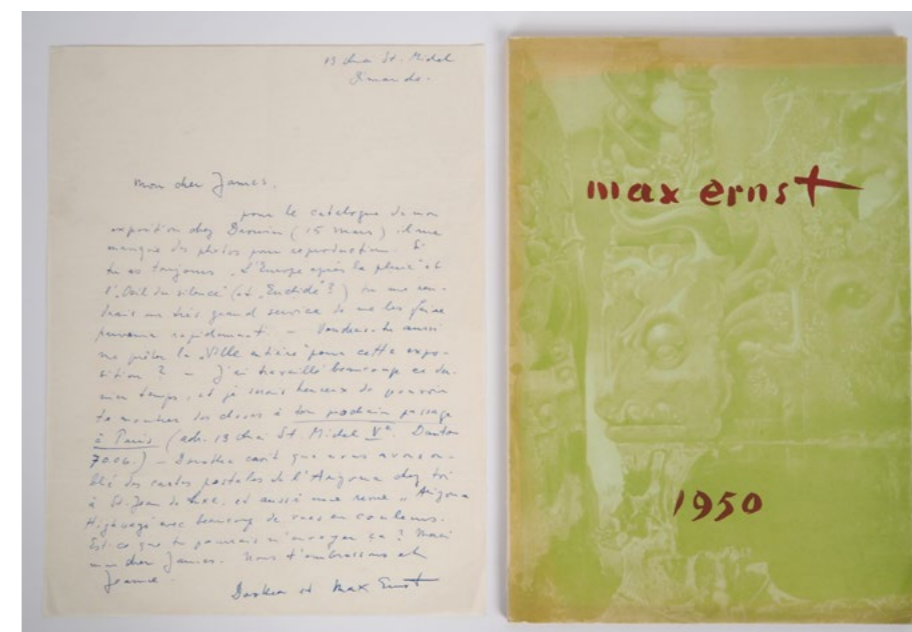 13 Quai St. Michel
Dimanche.
Mon cher James,
pour le catalogue de mon
exposition chez Drouin (15 mars) il me
manque des photos pour reproduction. Si
tu as toujours „L'Europe après la pluie" et
l'„Oeil du silence" (et „Euclide"?) tu me ren-
drais un très grand service de me les faire
parvenir rapidement. – Voudrais-tu aussi
me prêter la „Ville entière" pour cette expo-
sition ? – J'ai travaillé beaucoup ce der-
nier temps, et je serais heureux de pouvoir
te montrer des choses à ton prochain passage
à Paris (adr. 13 Quai St. Michel Ve. Danton
70.06.) – Dorothea croit que nous avons ou-
blié des cartes postales de l'Arizona chez toi
à St. Jean de Luz, et aussi une revue „Arizona
Highways" avec beaucoup de vues en couleurs.
Est-ce que tu pourrais m'envoyer ça ? Merci
mon cher James. Nous t'embrassons et
Jeanne
Dorothea et Max Ernst
max ernst
1950